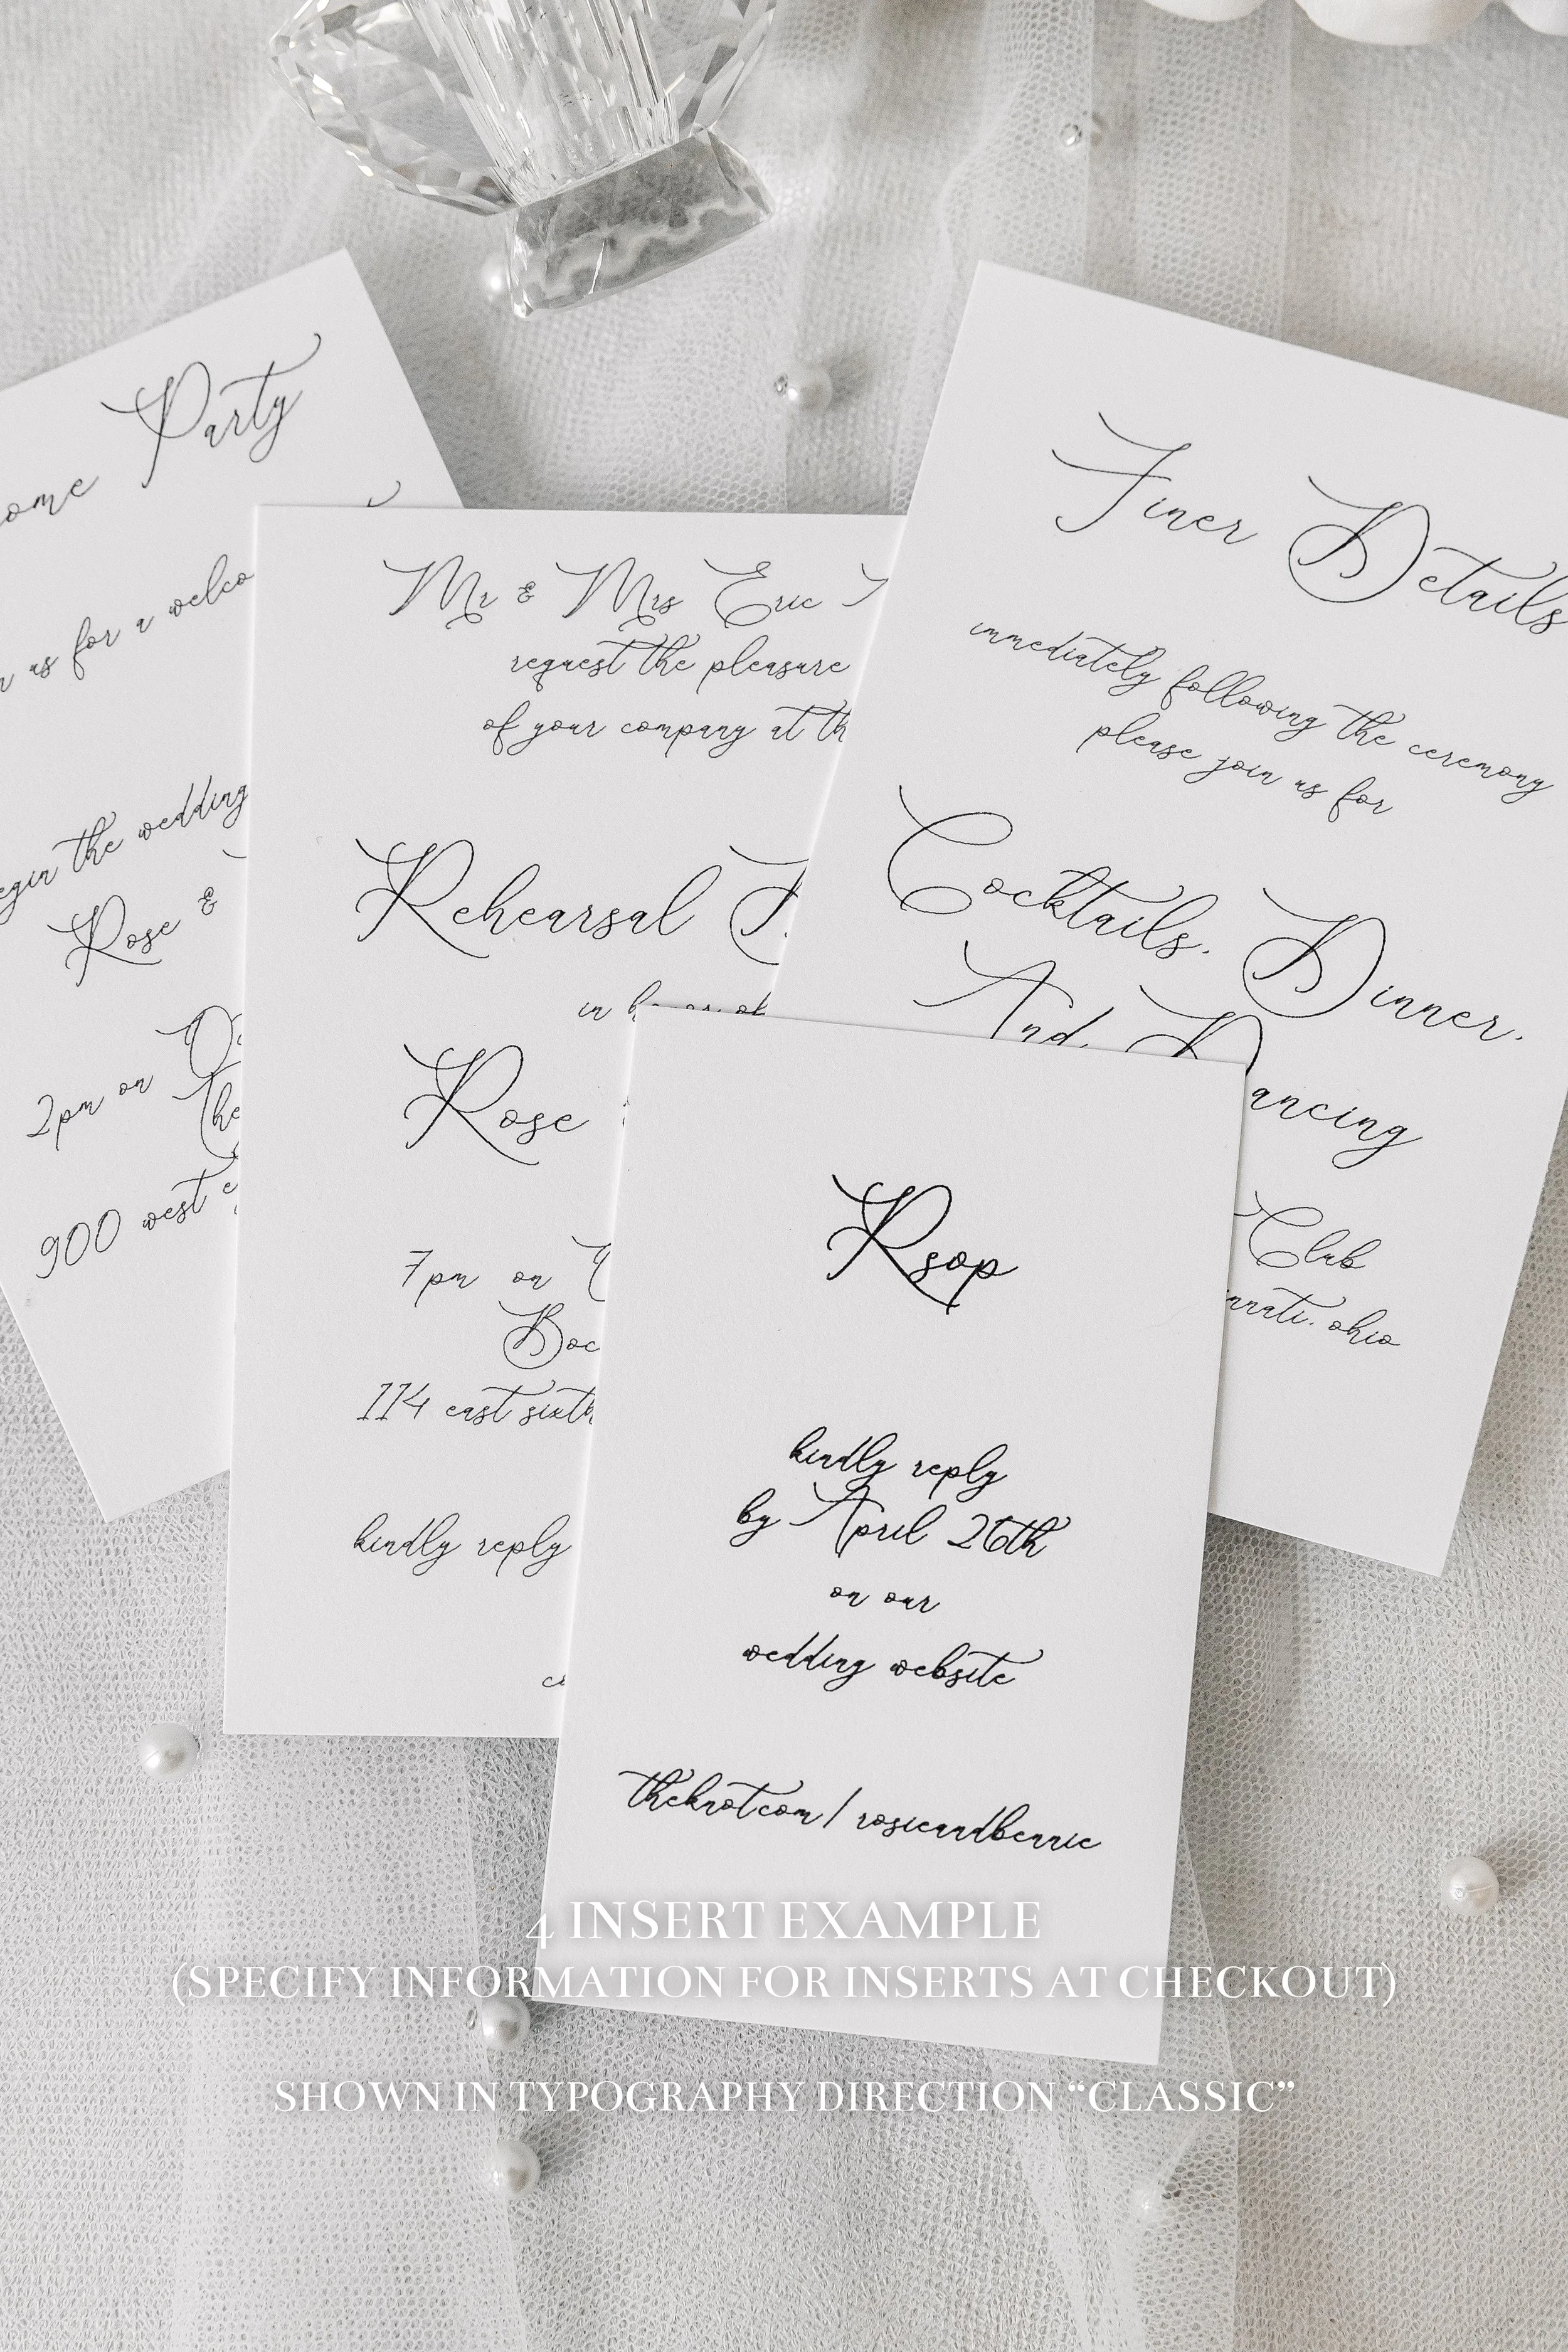 Party
us for a
the wedding
Rose &
2pm on
900 west
Mr & Mrs Eric
request the pleasure
of your company at
Rehearsal
in honor of
Rose
7pm on
114 east sixth
kindly reply
Finer Details
immediately following the ceremony
please join us for
Cocktails, Dinner,
And, Dancing
Club
ohio
Rsvp
kindly reply
by April 26th
on our
wedding website
theknot.com/rosieandbennie
4 INSERT EXAMPLE
(SPECIFY INFORMATION FOR INSERTS AT CHECKOUT)
SHOWN IN TYPOGRAPHY DIRECTION “CLASSIC”